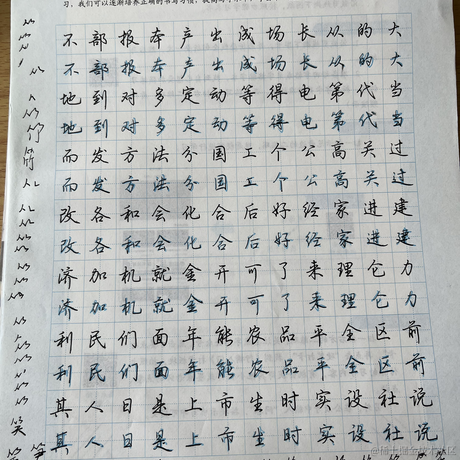 习，我们可以逐渐培养正确的书写习惯，提高写字水平
不部报本产出成场长从的大
不部报本产出成场长从的大
地到对多定动等得电第代当
地到对多定动等得电第代当
而发方法分国工个公高关过
而发方法分国工个公高关过
改各和会化合后好经家进建
改各和会化合后好经家进建
济加机就金开可了来理仑力
济加机就金开可了来理仑力
利民们面年能农品平全区前
利民们面年能农品平全区前
其人日是上市生时实设社说
其人日是上市生时实设社说